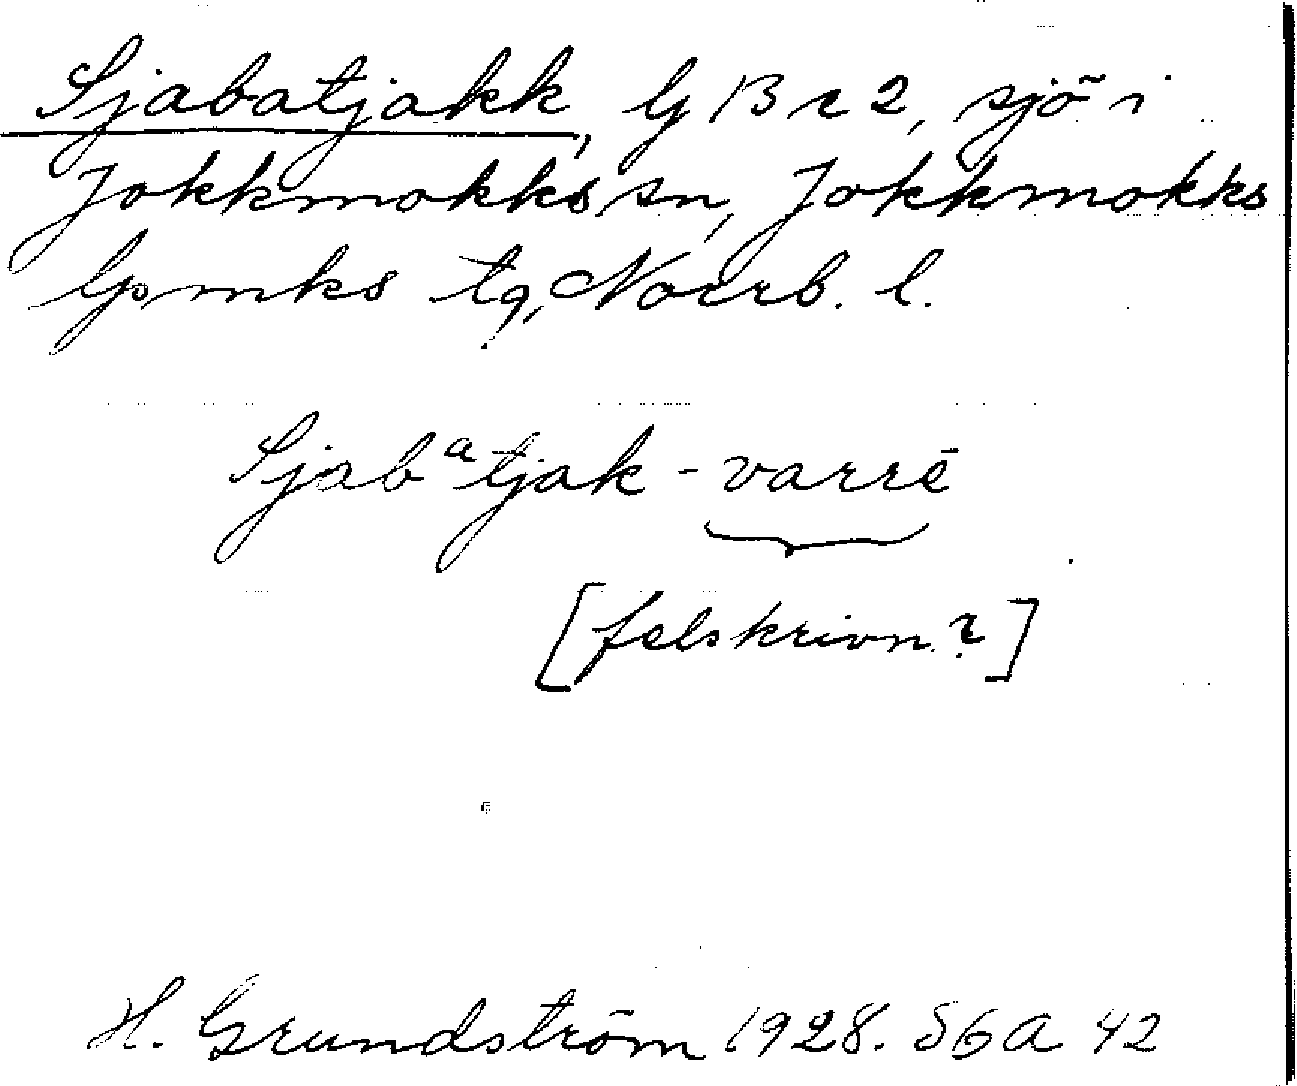 Sjabatjakk, G 13 r 2, sjö i
Jokkmokks sn, Jokkmokks
lpmks tg, Norrb. l.
Sjabᵃtjak - varrē
[felskrivn.?]
H. Grundström 1928. S6A 42